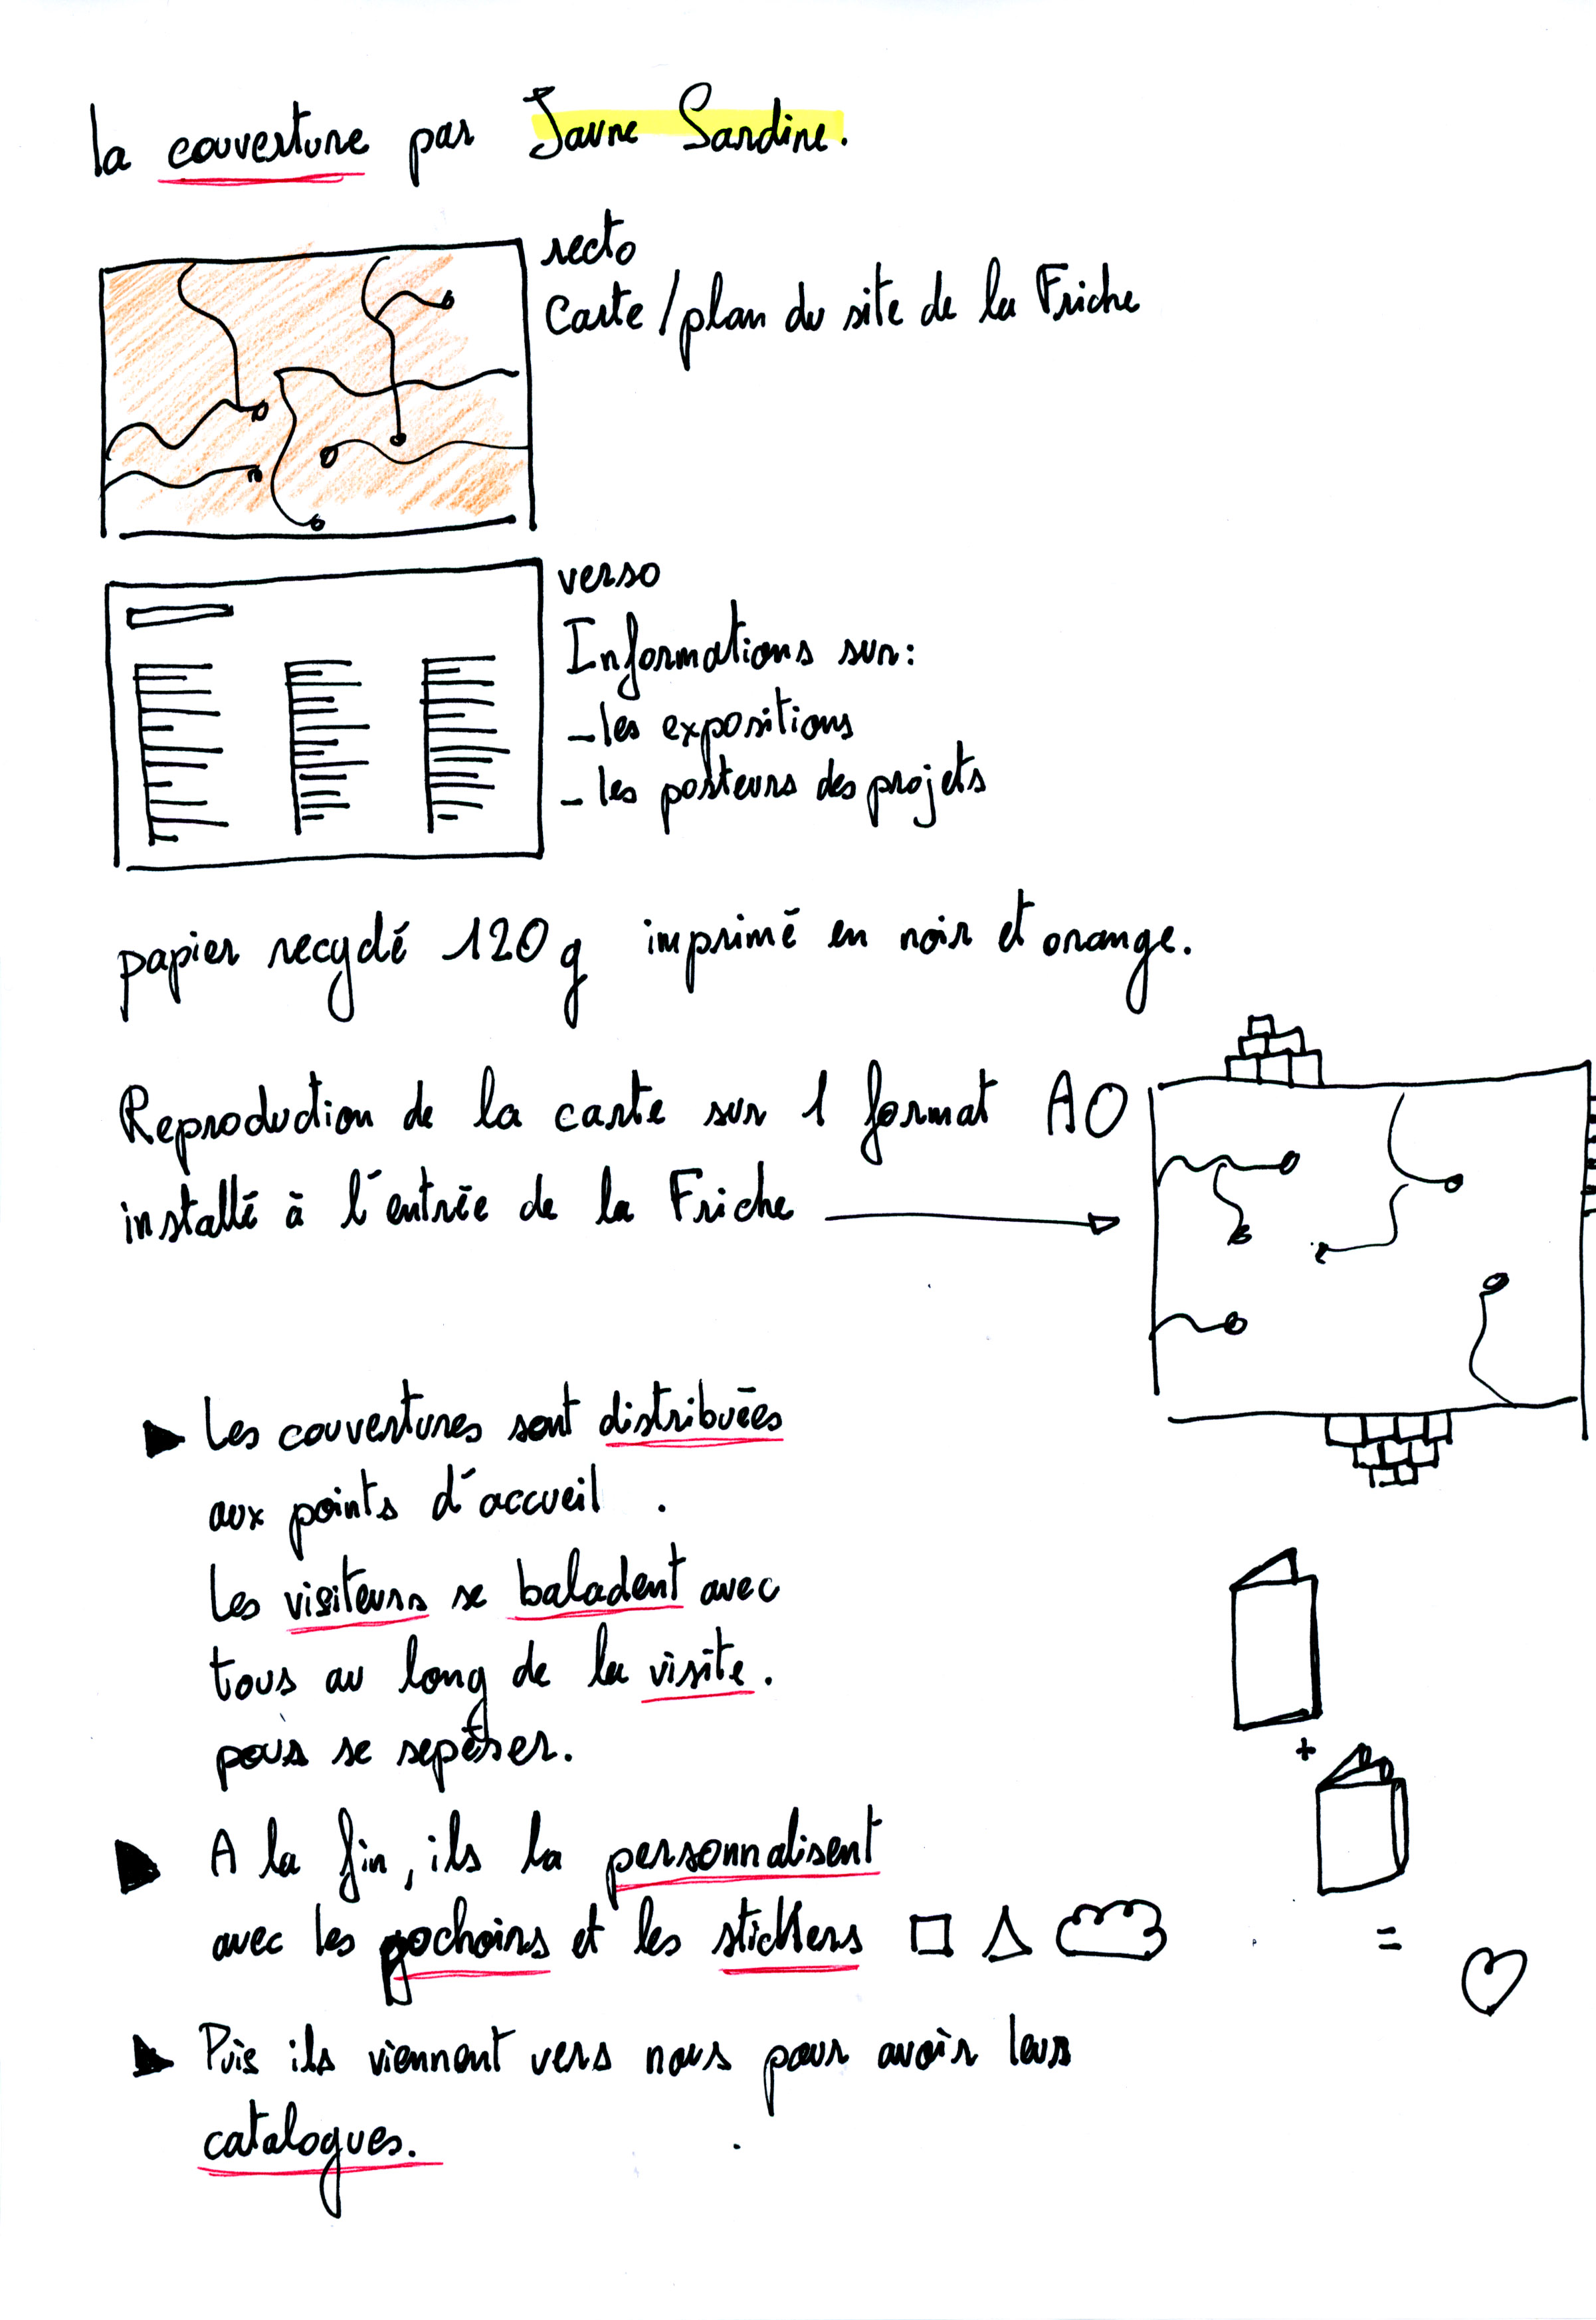 la couverture par Jaune Sardine.
recto
Carte / plan du site de la Friche
verso
Informations sur:
- les expositions
- les porteurs des projets
papier recyclé 120 g imprimé en noir et orange.
Reproduction de la carte sur 1 format A0
installé à l'entrée de la Friche
Les couvertures sont distribuées
aux points d'accueil .
Les visiteurs se baladent avec
tous au long de la visite.
pour se repérer.
+
A la fin, ils la personnalisent
avec les pochoirs et les stickers
=
Puis ils viennent vers nous pour avoir leurs
catalogues.